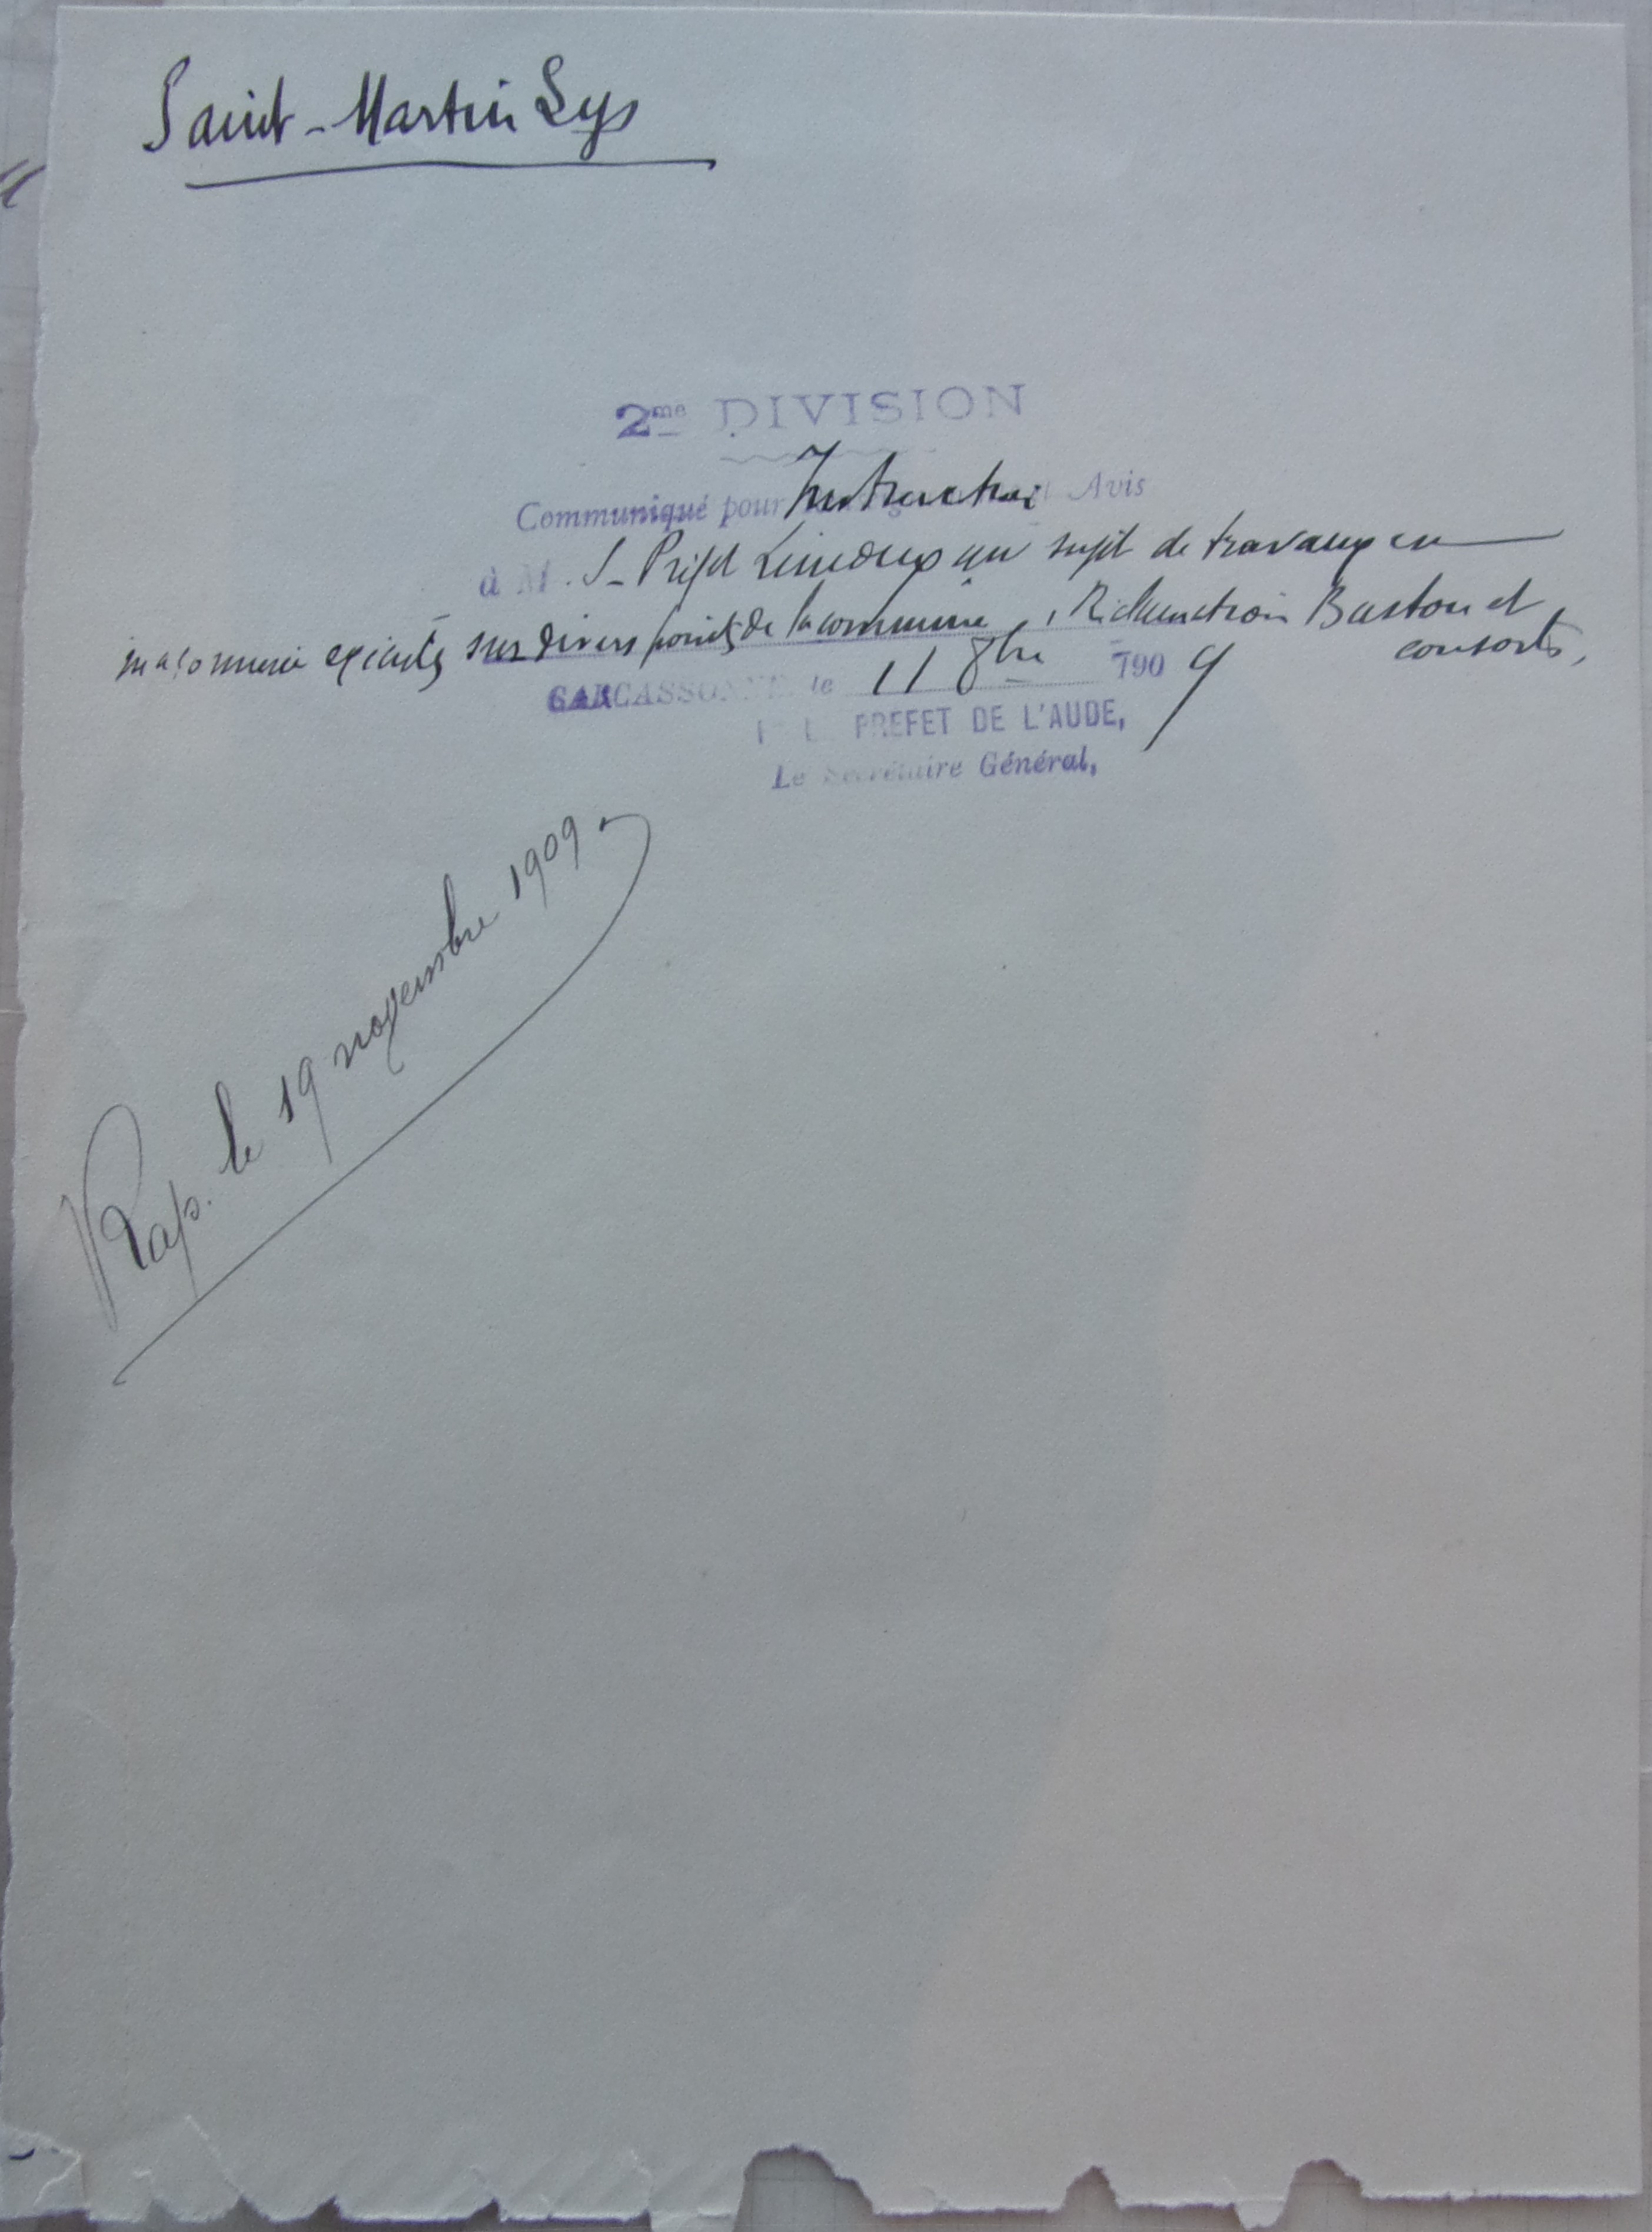 Saint-Martin Lys
2me DIVISION
Communiqué pour Instruction Avis
à M. S-Préfet Limoux au sujet de travaux en
maçonnerie exécutés sur divers points de la commune, Réclamation Baston et
consorts,
CARCASSONNE le 11 8bre 1909
LE PREFET DE L'AUDE,
Le Secrétaire Général,
Rap. le 19 novembre 1909